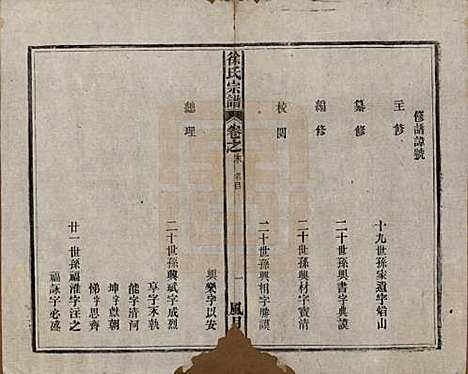 修譜諱號
主修
十九世孫家遺字貽山
纂修
二十世孫興書字典謨
編修
二十世孫興材字實清
校閱
二十世孫興相字勝謨
徐氏宗譜
卷之末
名目
一
興樂字以安
總理
二十世孫興斌字成烈
享字永執
能字清河
坤字獻朝
悌字思齊
廿一世孫福淮字汪之
福詠字必盛